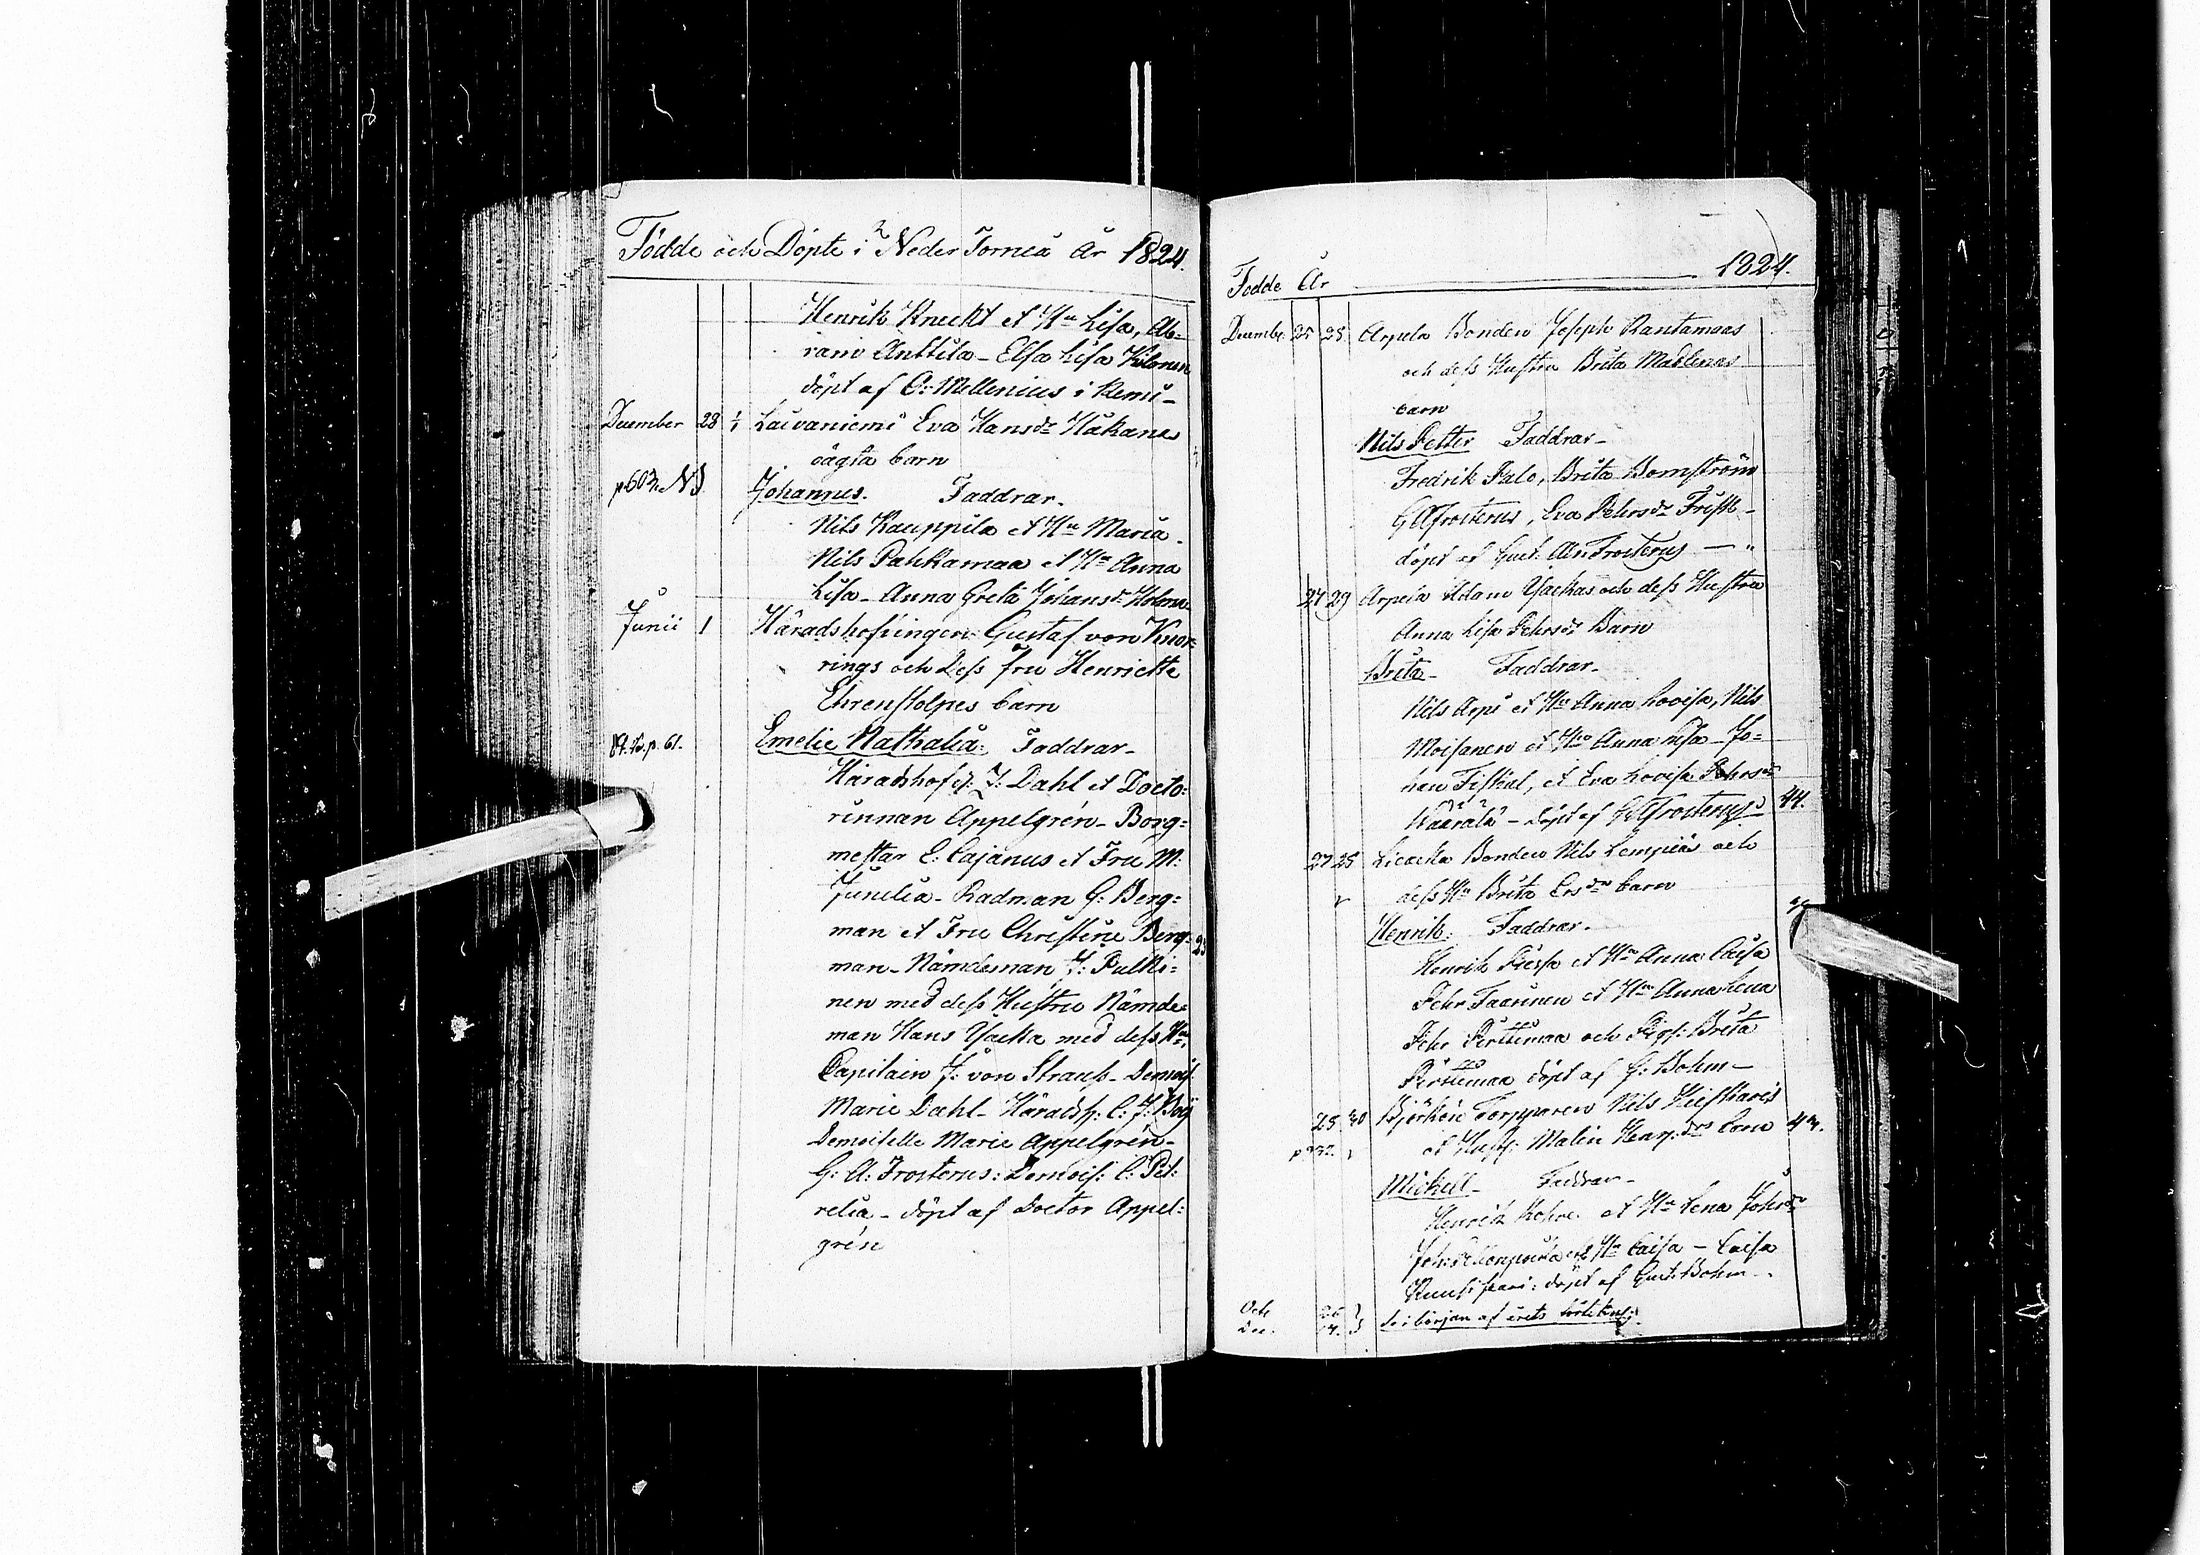 Födde och Döpte i Neder Torneå År 1824.
Henrik Kneckt et Hu Lisa, Ab=
ram Anttila - Elsa Lisa Kilonen
döpt af O: Mellenius i Kemi -
December 28 1/1 Laivaniemi Eva Hansdr Håkanes
oägta barn
p603. NB. Johannes. Faddrar.
Nils Kauppila et Hu Maria.
Nils Pahkamaa et Hu Anna
Lisa - Anna Greta Johansdr
Junii 1 Häradshöfdingen Gustaf von Knor=
rings och dess Fru Henriette
Ehrenstolpes barn
p. 61. Emelie Nathalia: Faddrar -
Häradshöfd: J: Dahl et Docto=
rinnan Appelgrén - Borg=
mestar E: Cajanus et Fru M:
Junelia - Radman G: Berg=
man et Fru Christine Berg= 23
man - Nämdeman J: Pulki=
nen med dess Hustru Nämde=
man Hans Yacka med dess Hu,
Capitain J: von Strauss - Demois:
Marie Dahl - Häradsh: C: J: Boij
Demoiselle Marie Appelgrén -
G: A: Frosterus: Demois: C: Pet=
relia - döpt af Doctor Appel=
grén
Födde År 1824.
Decembr. 25 25 Arpela Bonden Joseph Rantamaas
och dess Hustru Brita Madlenas
barn
Nils Petter Faddrar -
Fredrik Palo, Brita Bomström
G A Frosterus, Eva Pehrsdr Frisk -
döpt af Gust. Ad. Frosterus -
27 29 Arpela Adam Yackas och dess Hustru
Anna Lisa Pehrsdr Barn
Brita - Faddrar -
Nils Arpi et Hu Anna Lovisa, Nils
Moisanen et Hu Anna Lisa - Jo=
han Fiskal, et Eva Lovisa Pehrsdr
Kaarala - döpt af G A Frosterus 44.
27 28 Liacka Bonden Nils Lempiäs och
dess Hu Brita Ersdrs barn
Henrik. Faddrar.
Henrik Piessa et Hu Anna Caisa
Pehr Taarinen et Hu Anna Lena
Pehr Perttunmaa och Pig: Brita
Perttunmaa döpt af G: Bohm -
25 30 Björkön Torpparen Nils Kuistiaris
et Hust: Malin Henr:drs barn 43.
Mickel - Faddrar -
Henrik Kohve et Hu Lena Johsdr
Hu Caisa - Caisa
döpt af Gust: Bohm -
Octr 26
Dec. 14. Se i början af årets